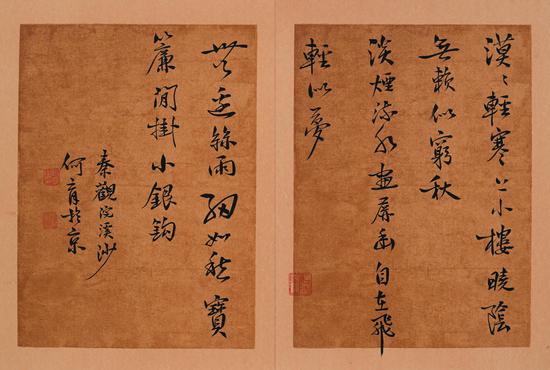 漠〻輕寒上小樓曉陰
無賴似窮秋
淡煙流水畫屏幽自在飛
輕似夢
無邊絲雨細如愁寶
簾閒掛小銀鈎
秦觀浣溪沙
何 於京